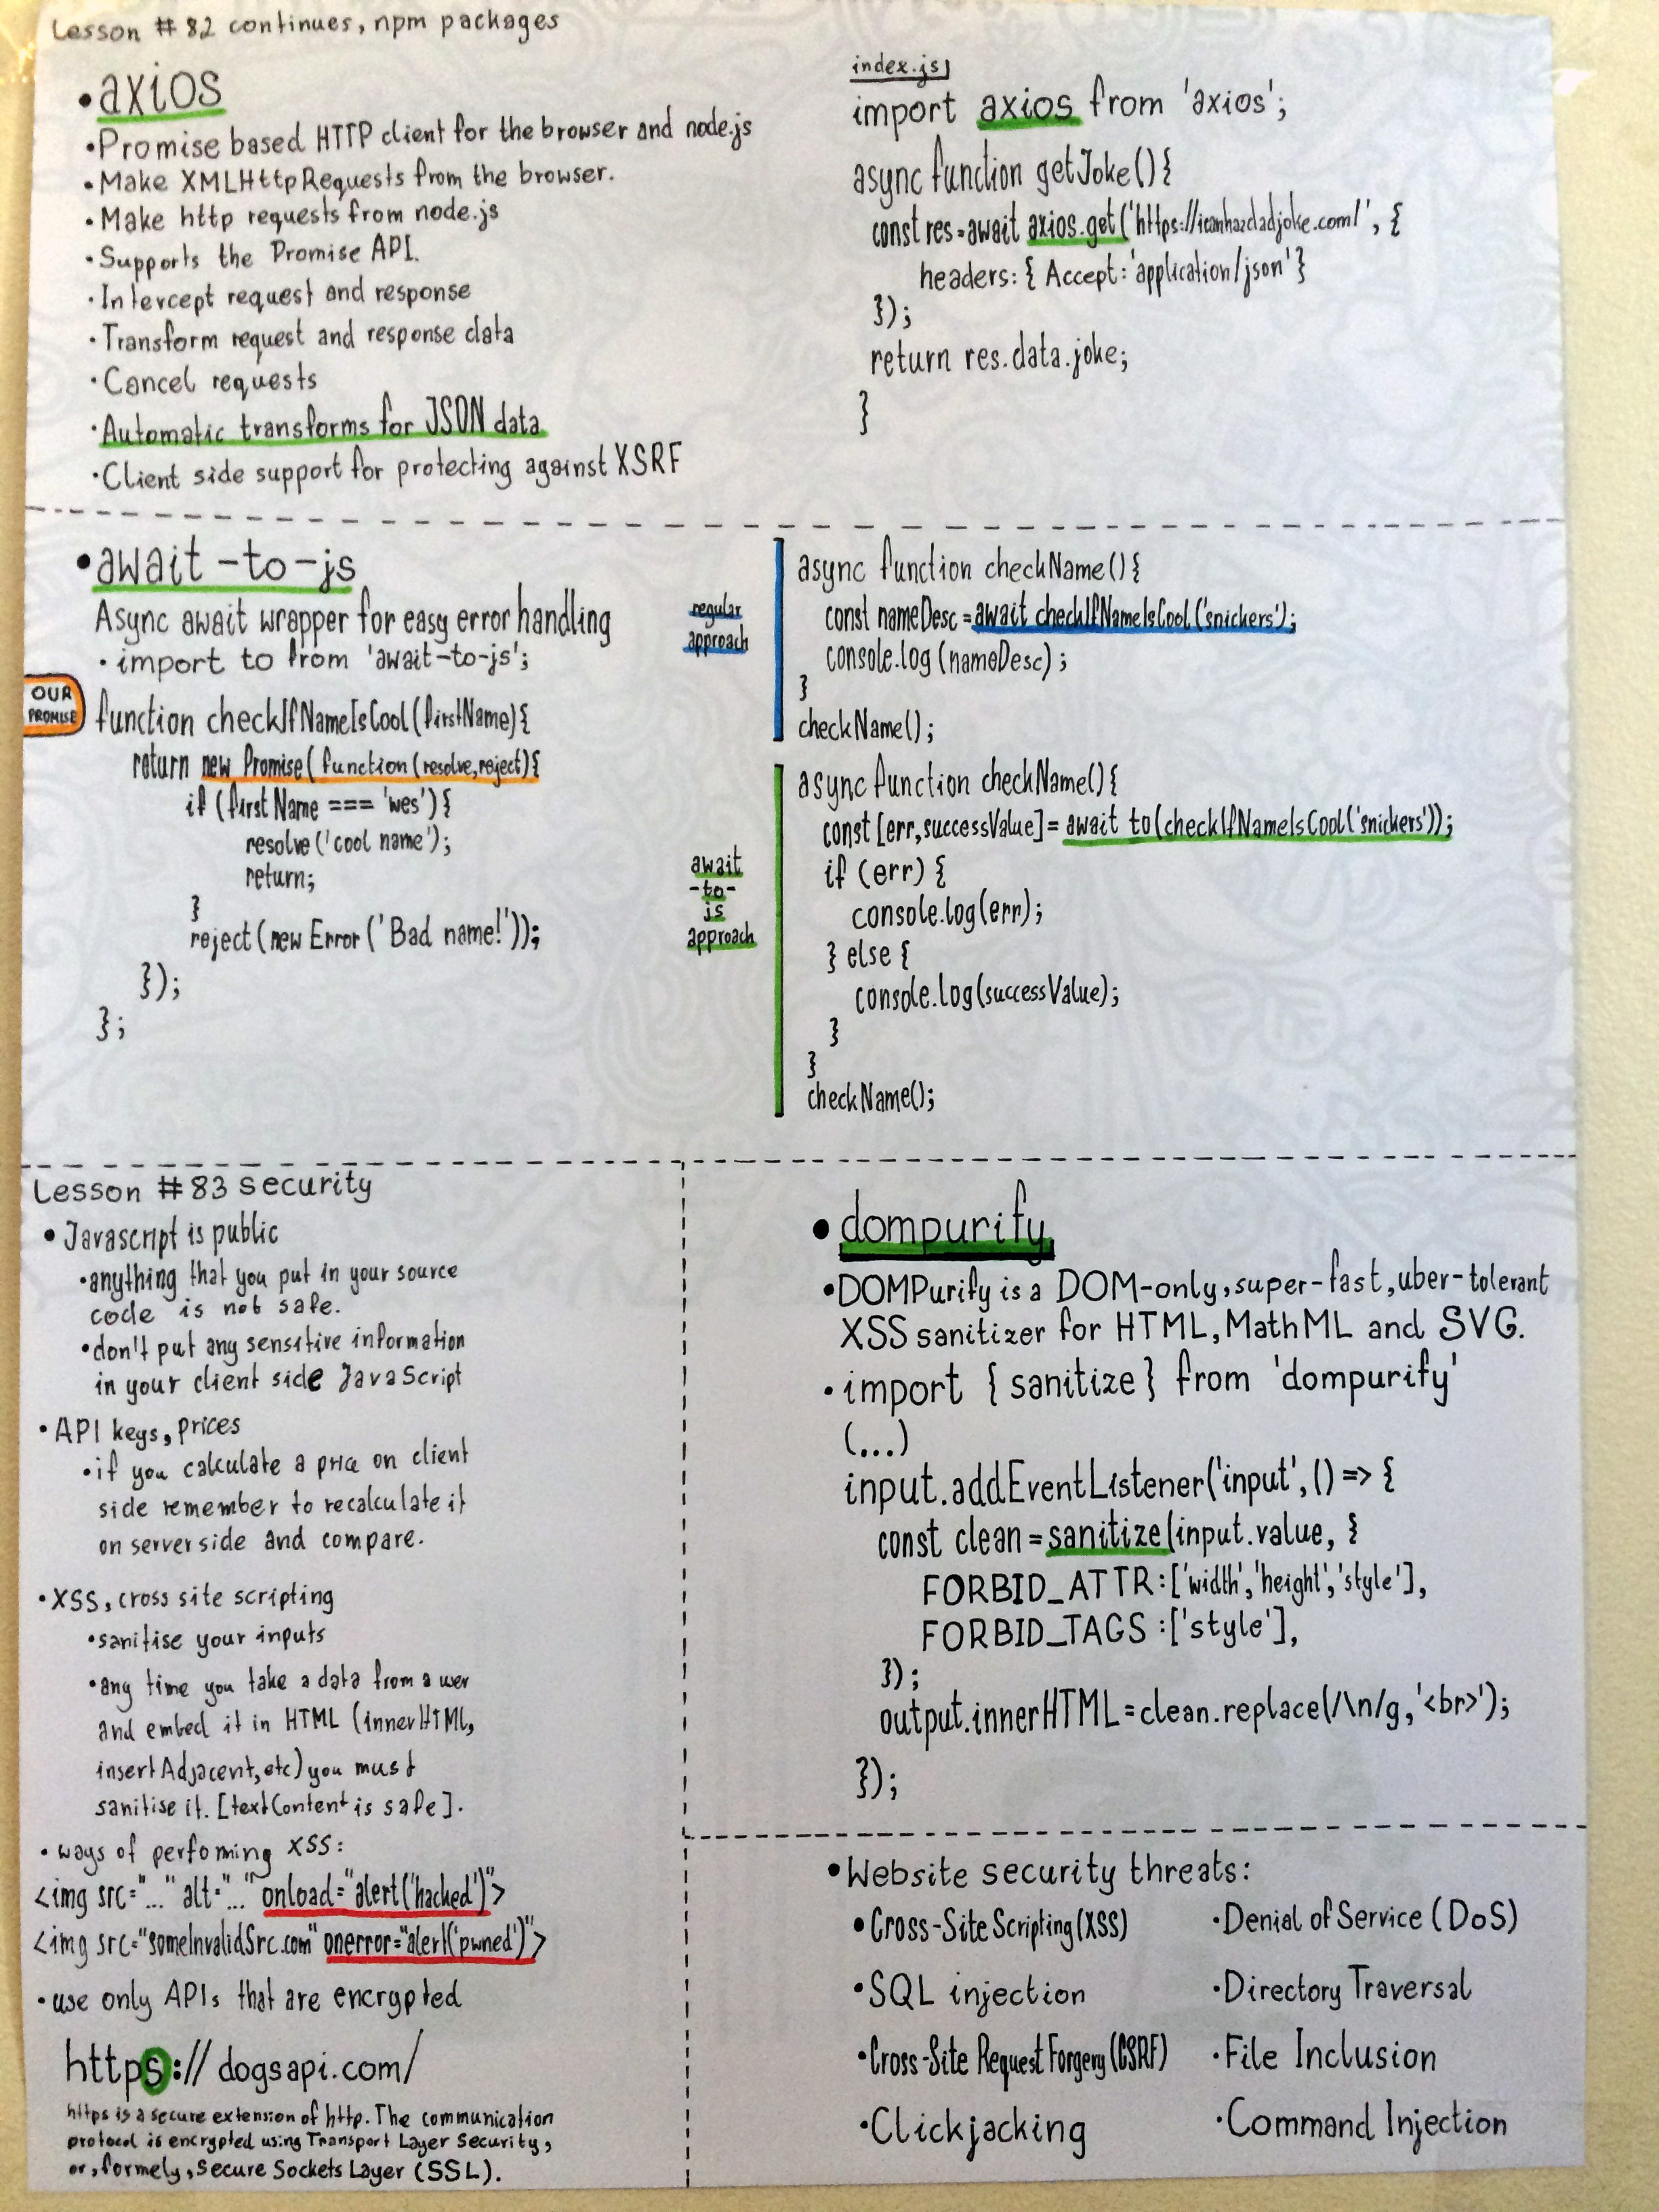 Lesson #82 continues, npm packages
• axios
• Promise based HTTP client for the browser and node.js
• Make XMLHttpRequests from the browser.
• Make http requests from node.js
• Supports the Promise API.
• Intercept request and response
• Transform request and response data
• Cancel requests
• Automatic transforms for JSON data
• Client side support for protecting against XSRF
index.js
import axios from 'axios';
async function getJoke(){
const res=await axios.get('https://icanhazdadjoke.com/', {
headers: { Accept: 'application/json'}
});
return res.data.joke;
}
• await-to-js
Async await wrapper for easy error handling
• import to from 'await-to-js';
OUR
PROMISE
function checkIfNameIsCool(firstName){
return new Promise( function (resolve,reject){
if (firstName === 'wes'){
resolve('cool name');
return;
}
reject(new Error('Bad name!'));
});
};
regular
approach
async function checkName(){
const nameDesc=await checkIfNameIsCool('snickers');
console.log(nameDesc);
}
checkName();
await
-to-
js
approach
async function checkName(){
const [err,successValue]= await to(checkIfNameIsCool('snickers'));
if (err) {
console.log(err);
} else {
console.log(successValue);
}
}
checkName();
Lesson #83 security
• Javascript is public
• anything that you put in your source
code is not safe.
• don't put any sensitive information
in your client side JavaScript
• API keys, prices
• if you calculate a price on client
side remember to recalculate it
on server side and compare.
• XSS, cross site scripting
• sanitise your inputs
• any time you take a data from a user
and embed it in HTML (innerHTML,
insertAdjacent, etc) you must
sanitise it. [textContent is safe].
• ways of perfoming XSS:
<img src="..." alt="..." onload="alert('hacked')">
<img src="someInvalidSrc.com" onerror="alert('pwned')">
• use only APIs that are encrypted
https://dogsapi.com/
https is a secure extension of http. The communication
protocol is encrypted using Transport Layer Security,
or, formely, Secure Sockets Layer (SSL).
• dompurify
• DOMPurify is a DOM-only, super-fast, uber-tolerant
XSS sanitizer for HTML, MathML and SVG.
• import { sanitize } from 'dompurify'
(...)
input.addEventListener('input', () => {
const clean = sanitize(input.value, {
FORBID_ATTR: ['width', 'height', 'style'],
FORBID_TAGS: ['style'],
});
output.innerHTML=clean.replace(/\n/g, '<br>');
});
• Website security threats:
• Cross-Site Scripting (XSS)
• Denial of Service (DoS)
• SQL injection
• Directory Traversal
• Cross-Site Request Forgery (CSRF)
• File Inclusion
• Clickjacking
• Command Injection